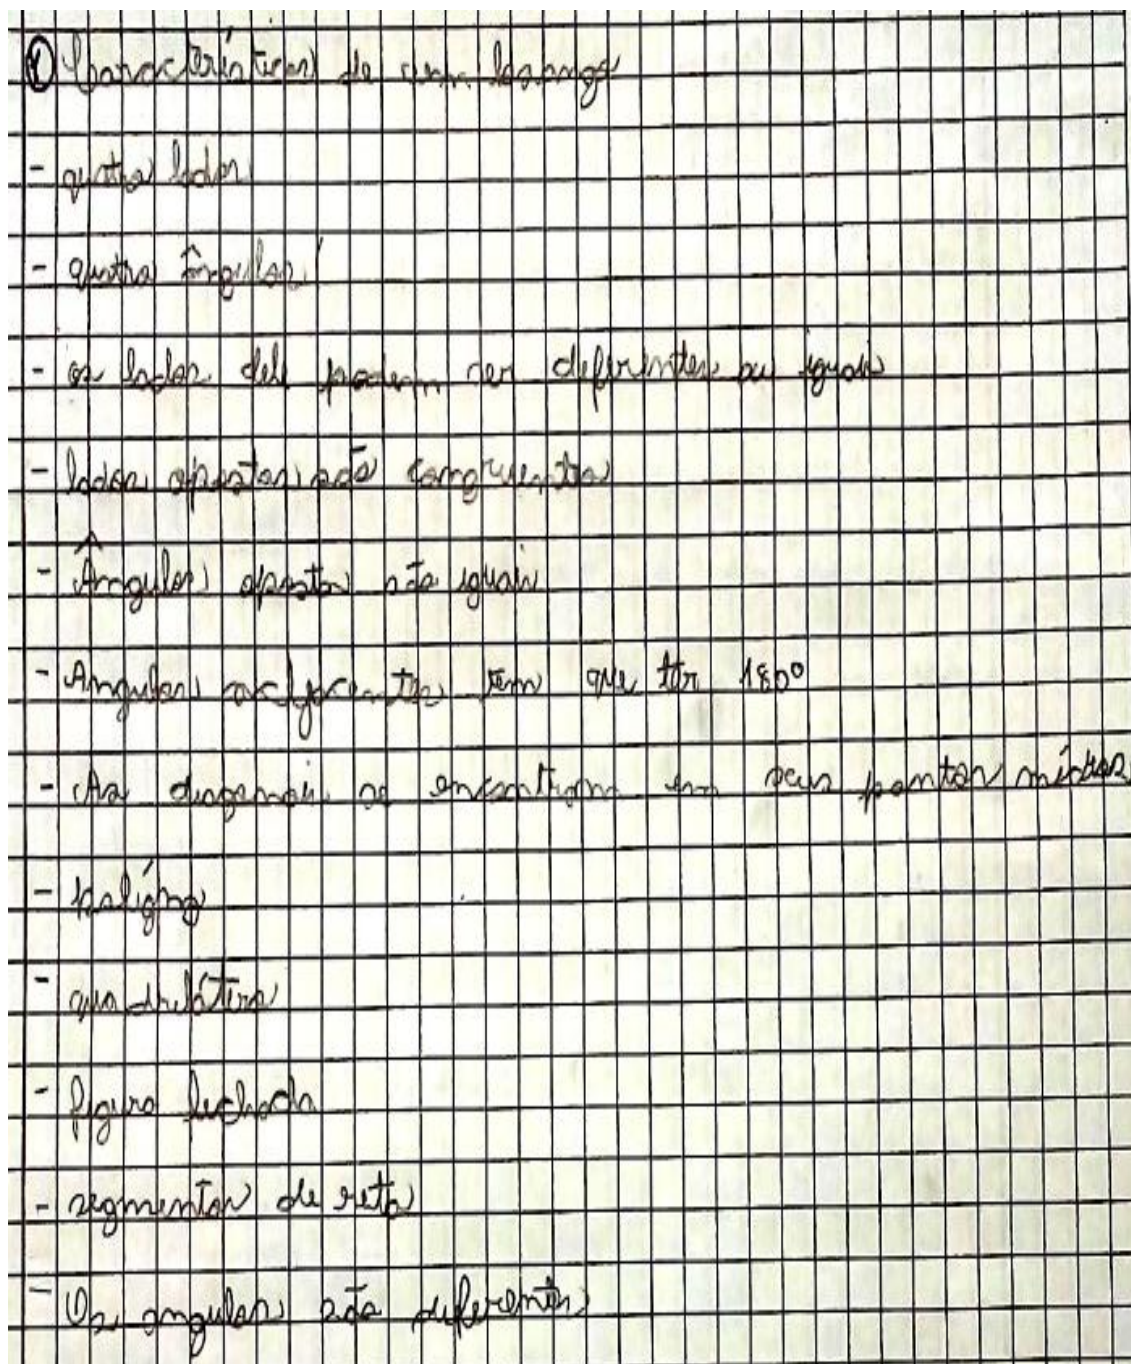 ① Características de um losango
- quatro lados
- quatro ângulos
- os lados dele podem ser deferentes ou iguais
- lados opostos são congruentes
- Ângulos opostos são iguais
- Angulos adjacentes tem que ter 180°
- As diagonais se encontram em seus pontos médios
- polígno
- quadrilátero
- figura fechada
- segmentos de reta
- Os angulos são diferentes